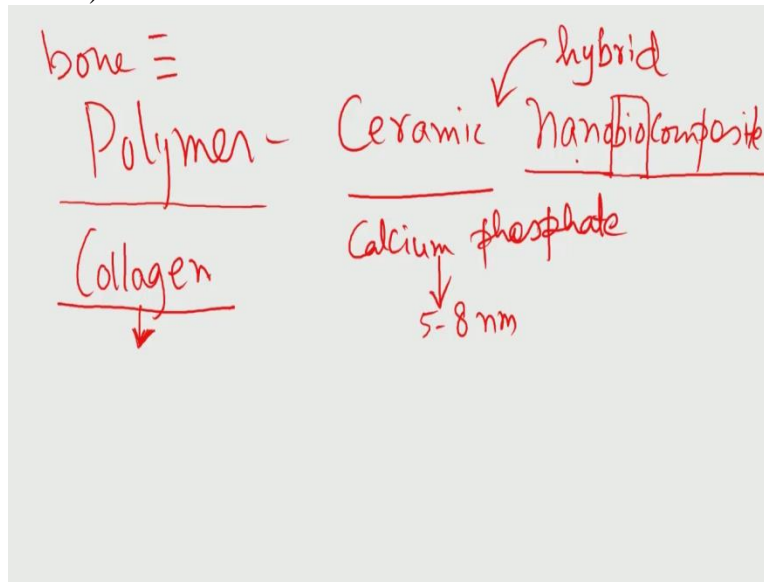 bone ≡
hybrid
Polymer - Ceramic nanobiocomposite
Collagen
Calcium phosphate
5-8 nm